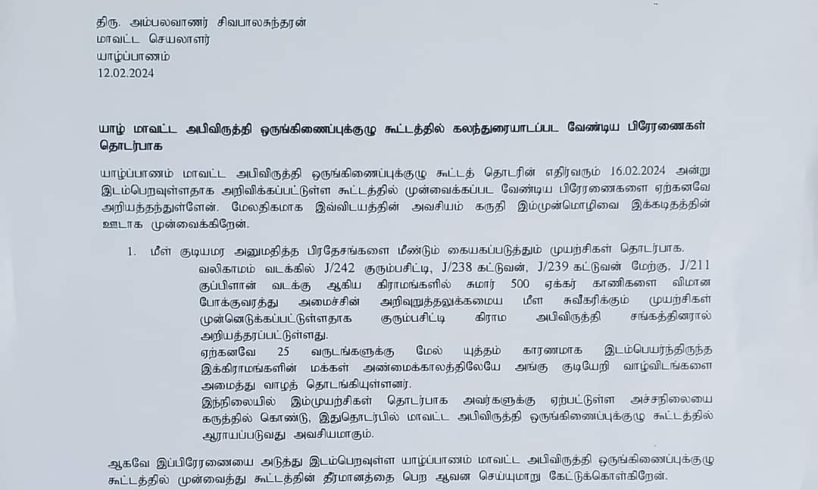 திரு. அம்பலவாணர் சிவபாலசுந்தரன்
மாவட்ட செயலாளர்
யாழ்ப்பாணம்
12.02.2024
யாழ் மாவட்ட அபிவிருத்தி ஒருங்கிணைப்புக்குழு கூட்டத்தில் கலந்துரையாடப்பட வேண்டிய பிரேரணைகள்
தொடர்பாக
யாழ்ப்பாணம் மாவட்ட அபிவிருத்தி ஒருங்கிணைப்புக்குழு கூட்டத் தொடரின் எதிர்வரும் 16.02.2024 அன்று
இடம்பெறவுள்ளதாக அறிவிக்கப்பட்டுள்ள கூட்டத்தில் முன்வைக்கப்பட வேண்டிய பிரேரணைகளை ஏற்கனவே
அறியத்தந்துள்ளேன். மேலதிகமாக இவ்விடயத்தின் அவசியம் கருதி இம்முன்மொழிவை இக்கடிதத்தின்
ஊடாக முன்வைக்கிறேன்.
1. மீள் குடியமர அனுமதித்த பிரதேசங்களை மீண்டும் கையகப்படுத்தும் முயற்சிகள் தொடர்பாக.
வலிகாமம் வடக்கில் J/242 குரும்பசிட்டி, J/238 கட்டுவன், J/239 கட்டுவன் மேற்கு, J/211
குப்பிளான் வடக்கு ஆகிய கிராமங்களில் சுமார் 500 ஏக்கர் காணிகளை விமான
போக்குவரத்து அமைச்சின் அறிவுறுத்தலுக்கமைய மீள சுவீகரிக்கும் முயற்சிகள்
முன்னெடுக்கப்பட்டுள்ளதாக குரும்பசிட்டி கிராம அபிவிருத்தி சங்கத்தினரால்
அறியத்தரப்பட்டுள்ளது.
ஏற்கனவே 25 வருடங்களுக்கு மேல் யுத்தம் காரணமாக இடம்பெயர்ந்திருந்த
இக்கிராமங்களின் மக்கள் அண்மைக்காலத்திலேயே அங்கு குடியேறி வாழ்விடங்களை
அமைத்து வாழத் தொடங்கியுள்ளனர்.
இந்நிலையில் இம்முயற்சிகள் தொடர்பாக அவர்களுக்கு ஏற்பட்டுள்ள அச்சநிலையை
கருத்தில் கொண்டு, இதுதொடர்பில் மாவட்ட அபிவிருத்தி ஒருங்கிணைப்புக்குழு கூட்டத்தில்
ஆராயப்படுவது அவசியமாகும்.
ஆகவே இப்பிரேரணையை அடுத்து இடம்பெறவுள்ள யாழ்ப்பாணம் மாவட்ட அபிவிருத்தி ஒருங்கிணைப்புக்குழு
கூட்டத்தில் முன்வைத்து கூட்டத்தின் தீர்மானத்தை பெற ஆவன செய்யுமாறு கேட்டுக்கொள்கிறேன்.